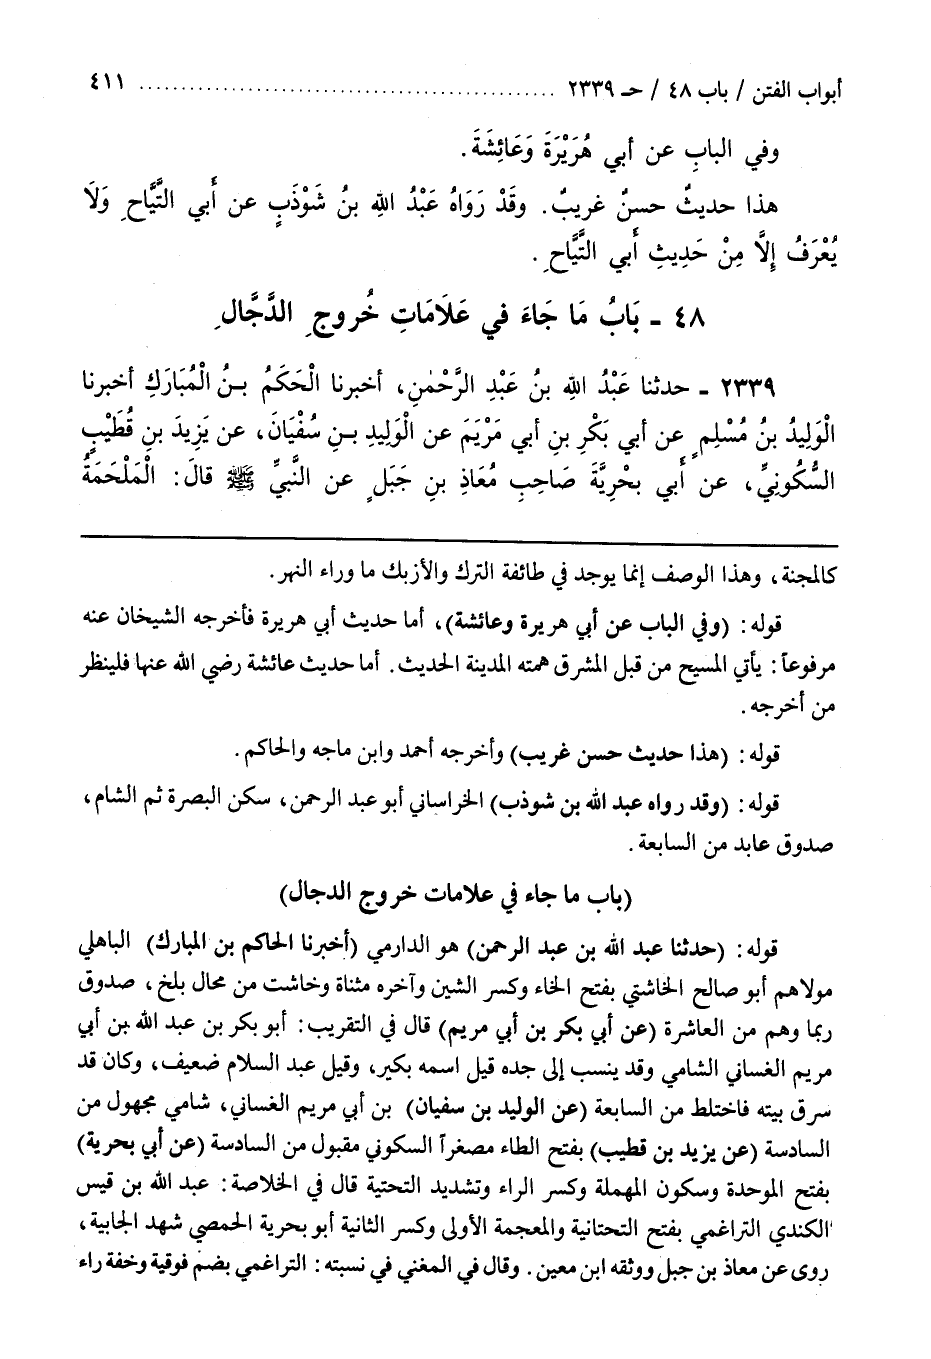 أبواب الفتن / باب ٤٨ / حـ ٢٣٣٩ ................................................ ٤١١
وفي البابِ عن أبي هُرَيْرَةَ وَعَائِشَةَ.
هذا حديثٌ حسنٌ غريبٌ. وقَدْ رَوَاهُ عَبْدُ اللهِ بنُ شَوْذَبٍ عن أَبي التَّيَّاحِ وَلَا
يُعْرَفُ إِلَّا مِنْ حَدِيثِ أَبي التَّيَّاحِ.
٤٨ ـ بَابُ مَا جَاءَ في عَلَامَاتِ خُروجِ الدَّجَّالِ
٢٣٣٩ ـ حدثنا عَبْدُ اللهِ بنُ عَبْدِ الرَّحْمٰنِ، أخبرنا الْحَكَمُ بـنُ الْمُبَارَكِ أخبرنا
الْوَلِيدُ بنُ مُسْلِمٍ عن أبي بَكْرِ بنِ أبي مَرْيَمَ عن الْوَلِيدِ بـنِ سُفْيَانَ، عن يَزِيدَ بنِ قُطَيْبٍ
السُّكُونيِّ، عن أَبي بَحْرِيَّةَ صَاحِبِ مُعَاذِ بنِ جَبَلٍ عن النَّبيِّ ﷺ قالَ: الْمَلْحَمَةُ
كالمجنة، وهذا الوصف إنما يوجد في طائفة الترك والأزبك ما وراء النهر.
قوله: (وفي الباب عن أبي هريرة وعائشة)، أما حديث أبي هريرة فأخرجه الشيخان عنه
مرفوعاً: يأتي المسيح من قبل المشرق همته المدينة الحديث. أما حديث عائشة رضي الله عنها فلينظر
من أخرجه.
قوله: (هذا حديث حسن غريب) وأخرجه أحمد وابن ماجه والحاكم.
قوله: (وقد رواه عبد الله بن شوذب) الخراساني أبو عبد الرحمن، سكن البصرة ثم الشام،
صدوق عابد من السابعة.
(باب ما جاء في علامات خروج الدجال)
قوله: (حدثنا عبد الله بن عبد الرحمن) هو الدارمي (أخبرنا الحاكم بن المبارك) الباهلي
مولاهم أبو صالح الخاشتي بفتح الخاء وكسر الشين وآخره مثناة وخاشت من محال بلخ، صدوق
ربما وهم من العاشرة (عن أبي بكر بن أبي مريم) قال في التقريب: أبو بكر بن عبد الله بن أبي
مريم الغساني الشامي وقد ينسب إلى جده قيل اسمه بكير، وقيل عبد السلام ضعيف، وكان قد
سرق بيته فاختلط من السابعة (عن الوليد بن سفيان) بن أبي مريم الغساني، شامي مجهول من
السادسة (عن يزيد بن قطيب) بفتح الطاء مصغراً السكوني مقبول من السادسة (عن أبي بحرية)
بفتح الموحدة وسكون المهملة وكسر الراء وتشديد التحتية قال في الخلاصة: عبد الله بن قيس
الكندي التراغمي بفتح التحتانية والمعجمة الأولى وكسر الثانية أبو بحرية الحمصي شهد الجابية،
روى عن معاذ بن جبل ووثقه ابن معين. وقال في المغني في نسبته: التراغمي بضم فوقية وخفة راء